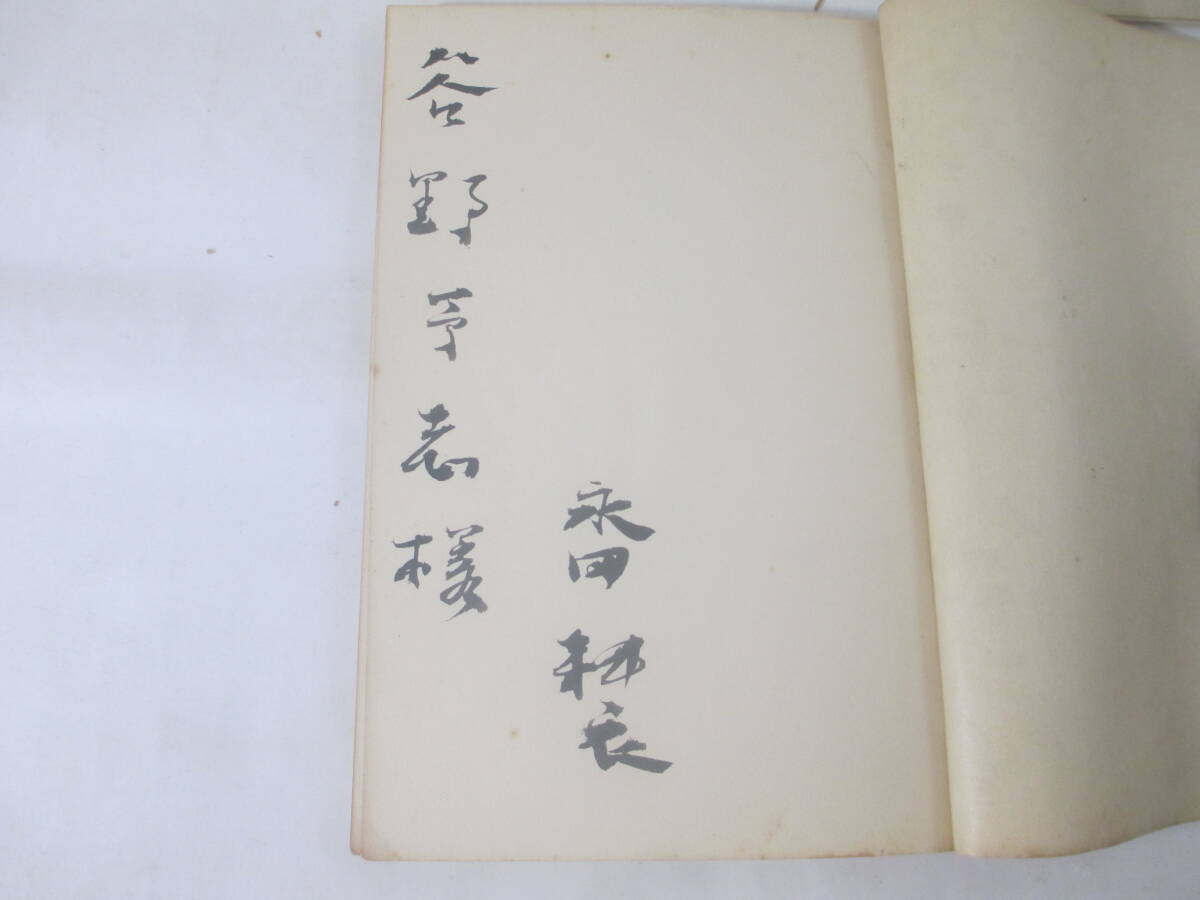 永田耕衣
谷野予志様